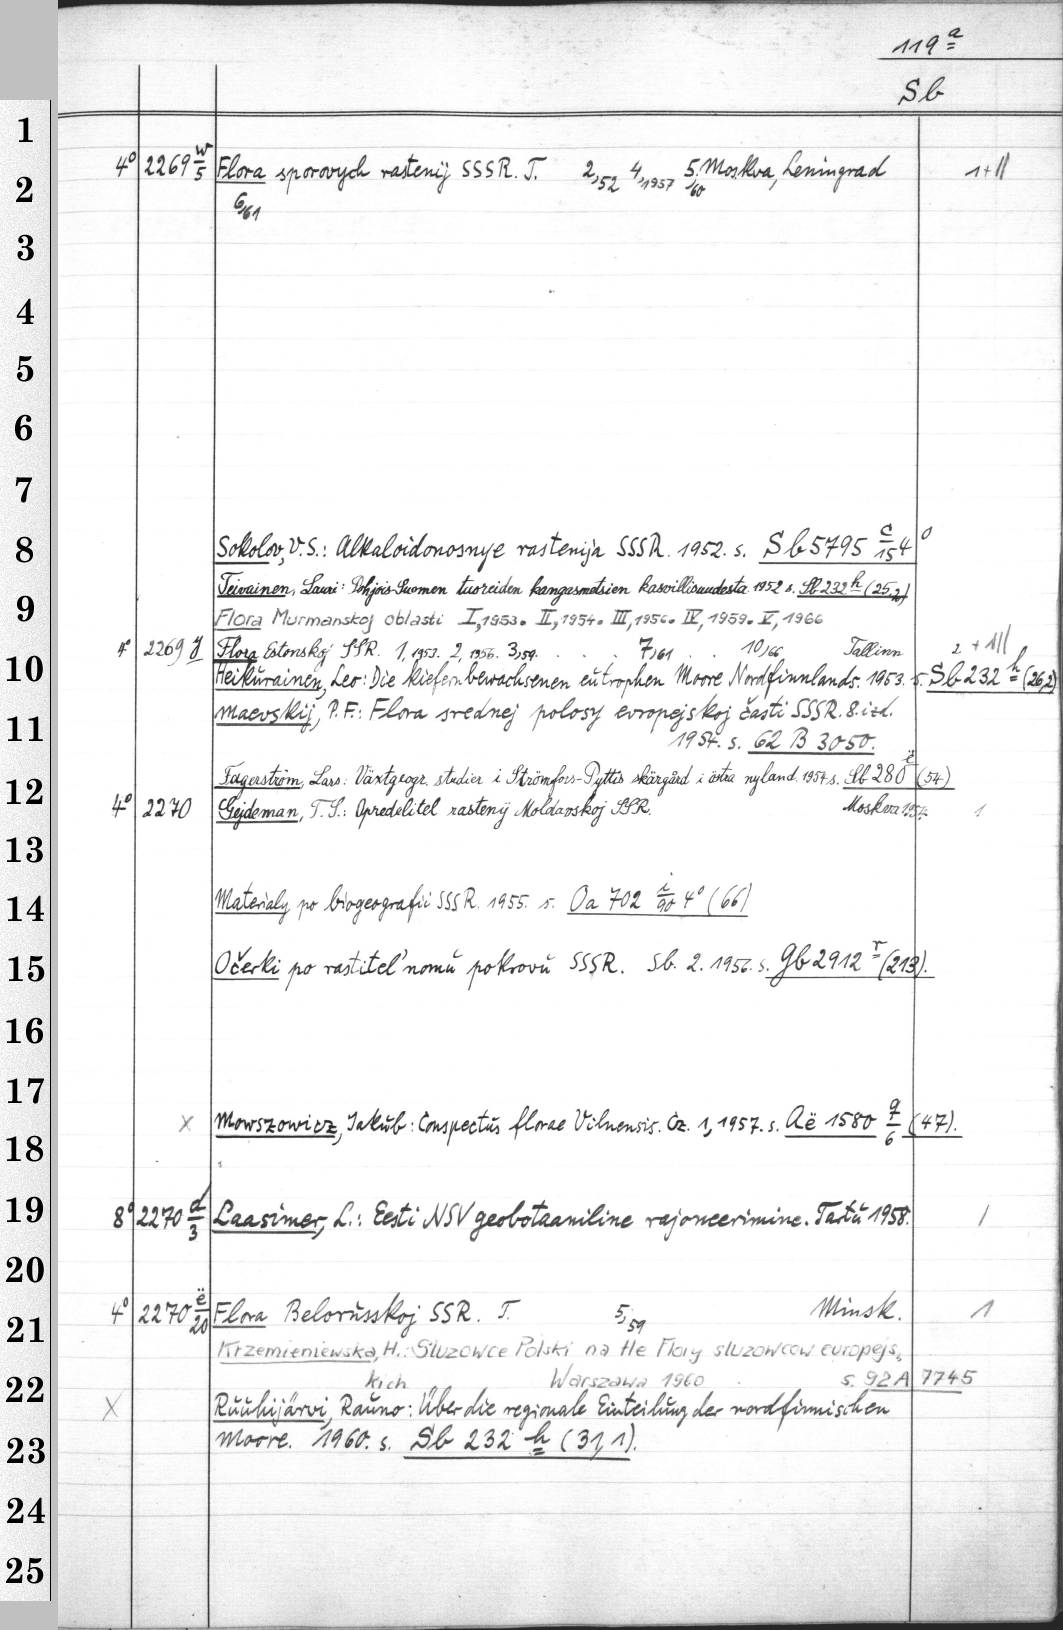 119 a
Sb
1
4° 2269 w/5 Flora sporovych rastenij SSSR. T. 2,52 4,1957 5,/60 Moskva, Leningrad 1+||
2
6/61
3
4
5
6
7
8 Sokolov, V.S.: Alkaloidonosnye rastenija SSSR. 1952. s. Sb 5795 c/15 4°
Teivainen, Lauri: Pohjois-Suomen tuoreiden kangasmetsien kasvillisuudesta 1952 s. Sb 232 h (25,2)
9 Flora Murmanskoj oblasti I,1953. II,1954. III,1956. IV,1959. V,1966
4° 2269 y Flora Estonskoj SSR. 1,1953. 2,1956. 3,59. . . . 7,61 . . 10,66 Tallinn 2 + |||
10 Heikurainen, Leo: Die kiefernbewachsenen eutrophen Moore Nordfinnlands. 1953. s. Sb 232 h (26,2)
Maevskij, P.F.: Flora srednej polosy evropejskoj časti SSSR. 8. izd.
11 1954. s. 62 B 3050.
12 Fagerström, Lars: Växtgeogr. studier i Strömfors-Pyttis skärgård i östra nyland. 1954 s. Sb 280 ë (54)
4° 2270 Gejdeman, T.S.: Opredelitel rastenij Moldavskoj SSR. Moskva 1954. 1
13
14 Materialy po biogeografii SSSR. 1955. s. Oa 702 i/90 4° (66)
15 Očerki po rastitel'nomu pokrovu SSSR. Sb. 2. 1956. s. Gb 2912 r (213).
16
17
x Mowszowicz, Jakub: Conspectus florae Vilnensis. Cz. 1, 1957. s. Aë 1580 q/6 (47).
18
19 8° 2270 d/3 Laasimer, L.: Eesti NSV geobotaaniline rajoneerimine. Tartu 1958. 1
20
4° 2270 ë/20 Flora Belorusskoj SSR. T. 5,59 Minsk. 1
21
Krzemieniewska, H.: Sluzowce Polski na tle Flory sluzowcow europejs,
22 kich Warszawa 1960 s. 92 A 7745
X Ruuhijärvi, Rauno: Über die regionale Einteilung der nordfinnischen
23 Moore. 1960. s. Sb 232 h (31,1).
24
25